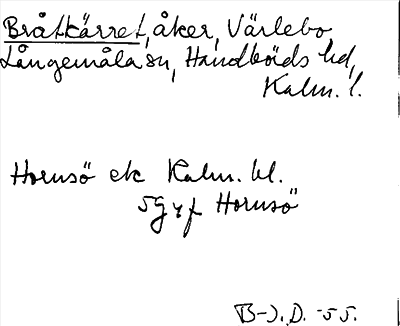 Bråtkärret, åker, Värlebo,
Långemåla sn, Handbörds hd,
Kalm. l.
Hornsö ek Kalm. bl.
5G y f Hornsö
B-J. D. -55.